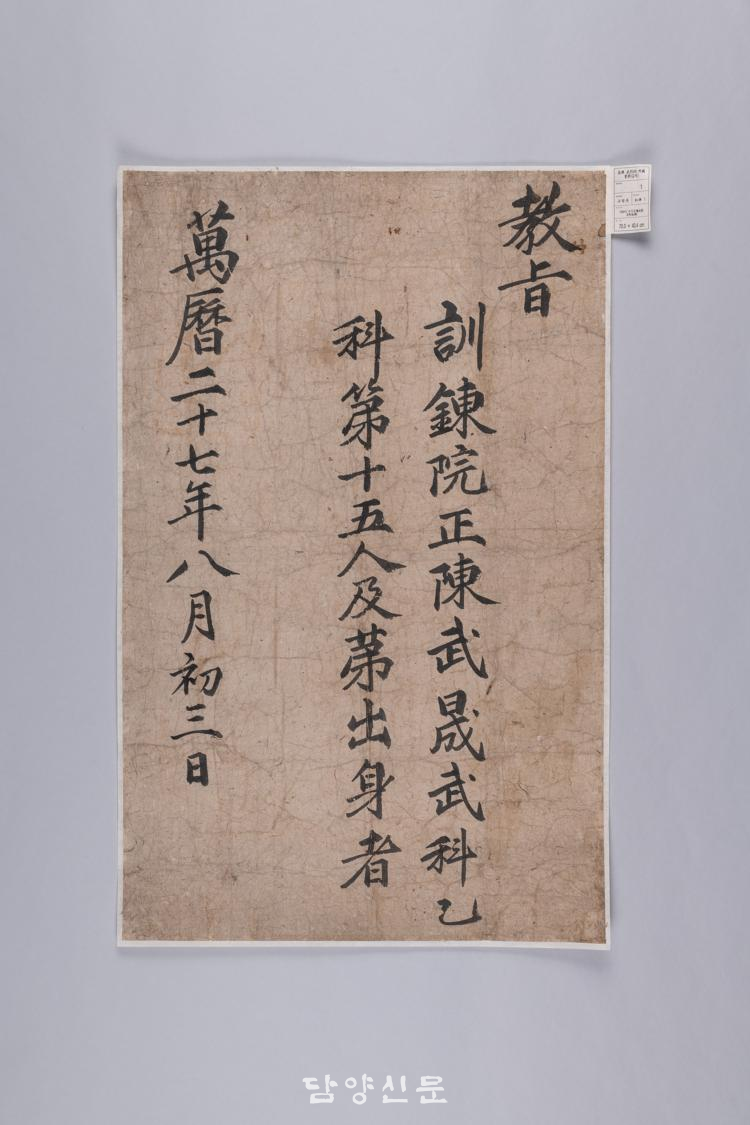 教旨
訓鍊院正陳武晟武科乙
科第十五人及苐出身者
萬曆二十七年八月初三日
1
담양신문